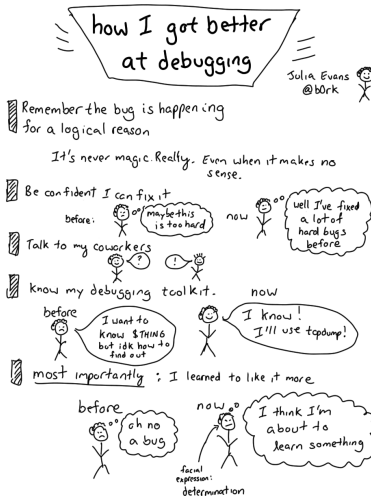 how I got better
at debugging
Julia Evans
@b0rk
Remember the bug is happening
for a logical reason
It's never magic. Really. Even when it makes no
sense.
Be confident I can fix it
before:
maybe this
is too hard
now
well I've fixed
a lot of
hard bugs
before
Talk to my coworkers
?
!
Know my debugging toolkit.
before
I want to
know $THING
but idk how to
find out
now
I know!
I'll use tcpdump!
most importantly: I learned to like it more
before
oh no
a bug
now
I think I'm
about to
learn something
facial
expression:
determination